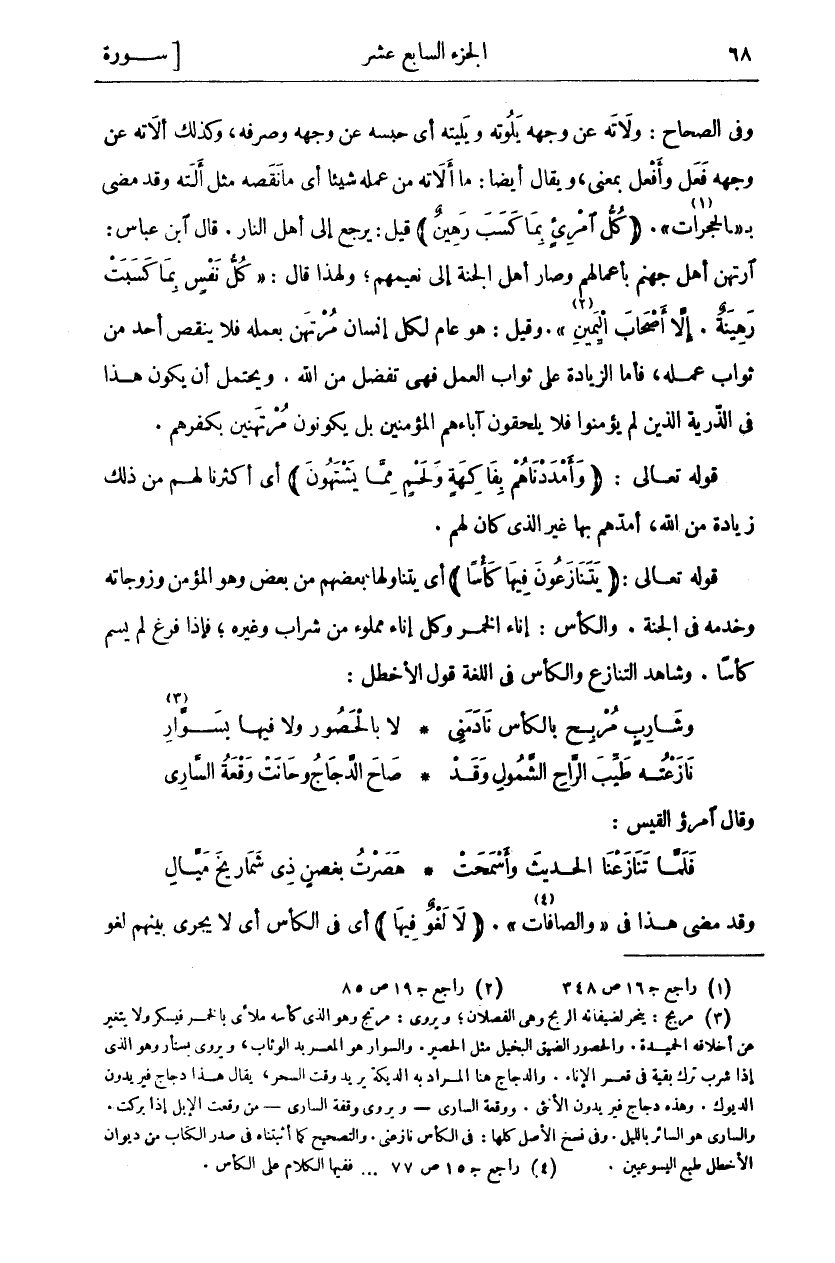 ٦٨ الجزء السابع عشر [ ســـورة
وفى الصحاح : ولَاتَه عن وجهه يَلُوته ويَلِيته أى حبسه عن وجهه وصرفه، وكذلك ألاته عن
وجهه فَعَل وأَفْعل بمعنى، ويقال أيضا: ما أَلَاته من عمله شيئا أى ما نَقَصه مثل أَلَته وقد مضى
بـ«ـالحجرات»(١). ﴿ كُلُّ ٱمْرِئٍ بِمَا كَسَبَ رَهِينٌ ﴾ قيل: يرجع إلى أهل النار . قال آبن عباس :
آرتهن أهل جهنم بأعمالهم وصار أهل الجنة إلى نعيمهم؛ ولهذا قال : « كُلُّ نَفْسٍ بِمَا كَسَبَتْ
رَهِينَةٌ . إِلَّا أَصْحَابَ الْيَمِينِ »(٢). وقيل : هو عام لكل إنسان مُرْتَهَن بعمله فلا ينقص أحد من
ثواب عمـله، فأما الزيادة على ثواب العمل فهى تفضل من الله . ويحتمل أن يكون هـذا
فى الذّرية الذين لم يؤمنوا فلا يلحقون آباءهم المؤمنين بل يكونون مُرْتهَنين بكفرهم .
قوله تعـالى : ﴿ وَأَمْدَدْنَاهُمْ بِفَاكِهَةٍ وَلَحْمٍ مِمَّا يَشْتَهُونَ ﴾ أى أكثرنا لهـم من ذلك
زيادة من الله، أمدّهم بها غير الذى كان لهم .
قوله تعـالى : ﴿ يَتَنَازَعُونَ فِيهَا كَأْسًا ﴾ أى يتناولها بعضهم من بعض وهو المؤمن وزوجاته
وخدمه فى الجنة . والكأس : إناء الخمـر وكل إناء مملوء من شراب وغيره ؛ فإذا فرغ لم يسم
كأسًا . وشاهد التنازع والكأس فى اللغة قول الأخطل :
وشَـارِبٍ مُرْبِـحٍ بالكأس نَادَمَنِى * لا بالْحَصُور ولا فيهـا بسَـــوَّارِ (٣)
نَازَعْتُـه طَيِّبَ الرَّاحِ الشَّمُولِ وَقَـدْ * صَاحَ الدَّجَاجُ وحَانَتْ وَقْعَةُ السَّارِى
وقال آمرؤ القيس :
فَلَمَّـا تَنَازَعْنَا الحـديثَ وأَسْمَحَتْ * هَصَرْتُ بغصنٍ ذِى شَمَارِيخَ مَيَّـالِ
وقد مضى هـذا فى « والصافات »(٤) . ﴿ لَا لَغْوٌ فِيهَا ﴾ أى فى الكأس أى لا يجرى بينهم لغو
(١) راجع جـ ١٦ ص ٣٤٨ (٢) راجع جـ ١٩ ص ٨٥
(٣) مربح : ينحر لضيفانه الربح وهى الفصلان؛ ويروى : مرتج وهو الذى كأسه ملأى بالخمـر فيسكر ولا يتغير
عن أخلاقه الحميـدة . والحصور الضيق البخيل مثل الحصير . والسوار هو المعـربد الوثاب، ويروى بسئار وهو الذى
إذا شرب ترك بقية فى قعـر الإناء . والدجاج هنا المـراد به الديكة يريد وقت السحر، يقال هـذا دجاج فيريدون
الديوك . وهذه دجاج فيريدون الأنثى . ووقعة السارى — ويروى وقفة السارى — من وقعت الإبل إذا بركت .
والسارى هو السائر بالليل . وفى نسخ الأصل كلها : فى الكأس نازعنى . والتصحيح كما أثبتناه فى صدر الكتاب من ديوان
الأخطل طبع اليسوعيين . (٤) راجع جـ ١٥ ص ٧٧ ... ففيها الكلام على الكأس .